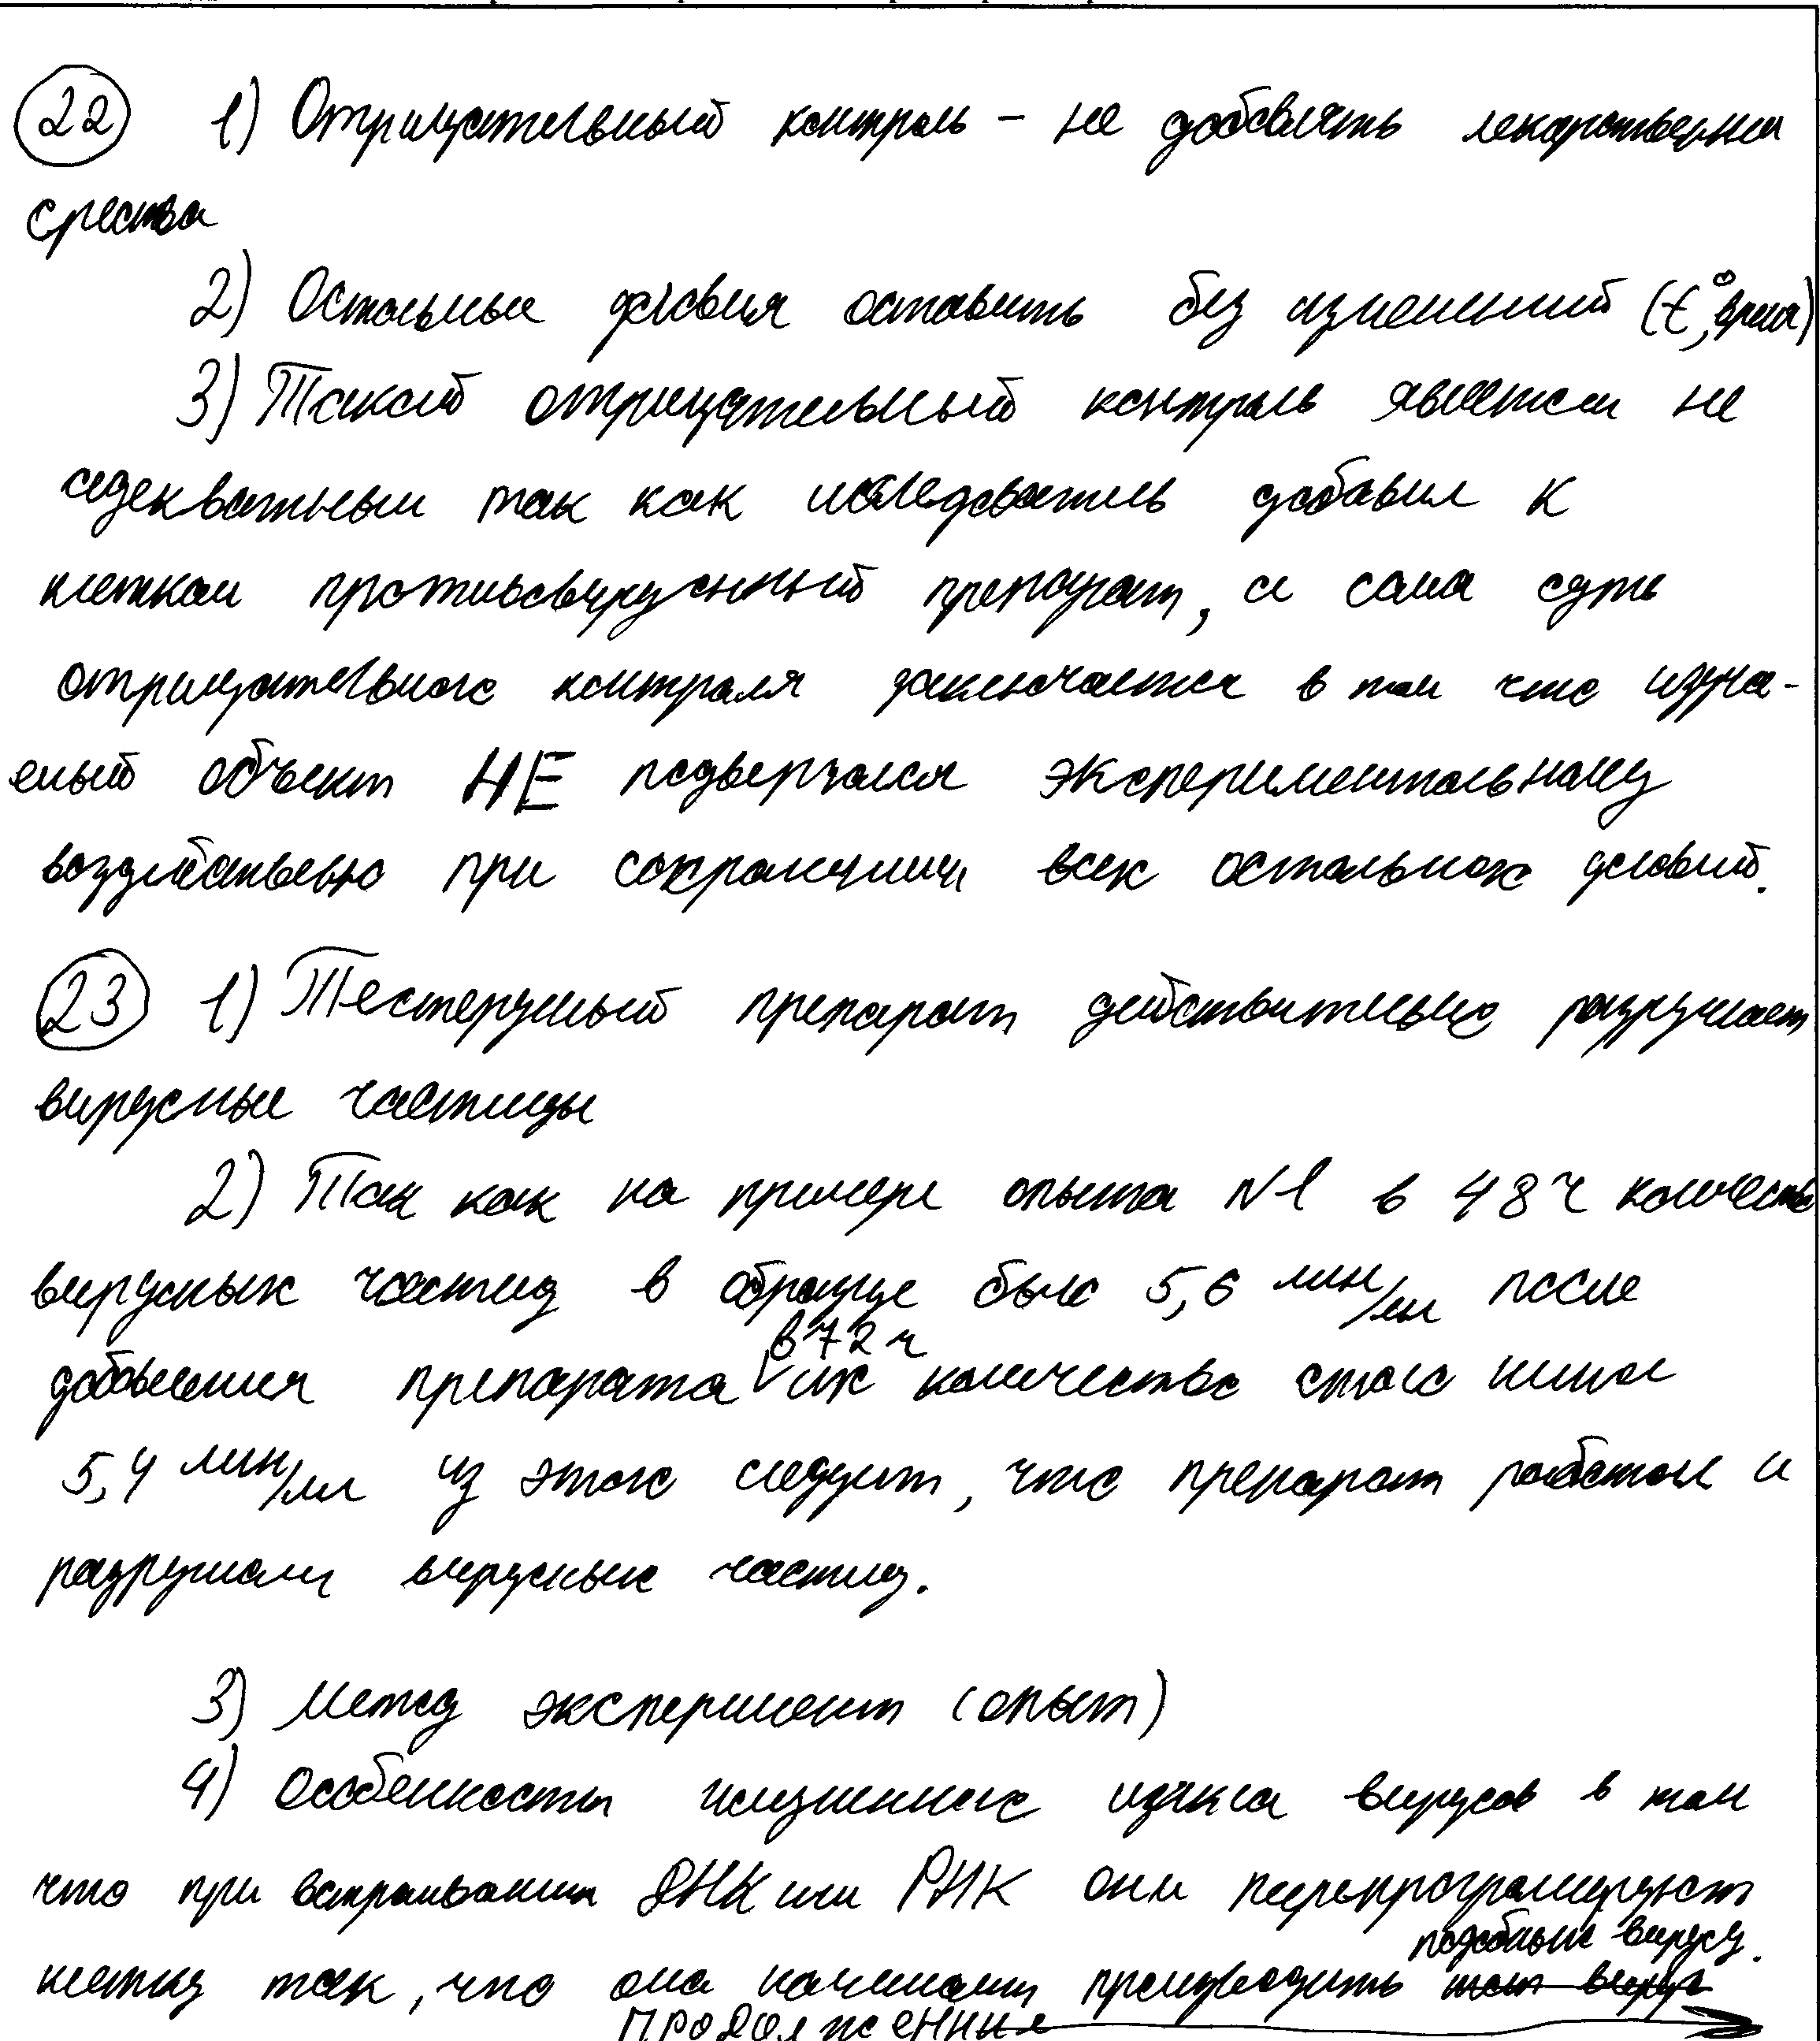 22 1) Отрицательный контроль - не добавлять лекарственна
средства
2) Остальные условия оставить без изменений (t°, время)
3) Такой отрицательный контроль является не
адекватным так как исследователь добавил к
клеткам противовирусный препарат, а сама суть
отрицательного контроля заключается в том что изуча-
емый объект НЕ подвергался экспериментальному
воздействию при сохранении всех остальных условий.
23 1) Тестеруемый препарат действительно разрушает
вирусные частицы
2) Так как на примере опыта №1 в 48 ч количество
вирусных частиц в образце было 5,6 млн/мл после
в 72 ч
добовления препарата их количество стало ниже
5,4 млн/мл из этого следует, что препарат работал и
разрушал вирусных частиц.
3) Метод эксперимент (опыт)
4) Особенность жизненного цикла вирусов в том
что при встраивании ДНК или РНК они перепрограмируют
подобные вирусу.
клетку так, что она начинает производить
продолжение